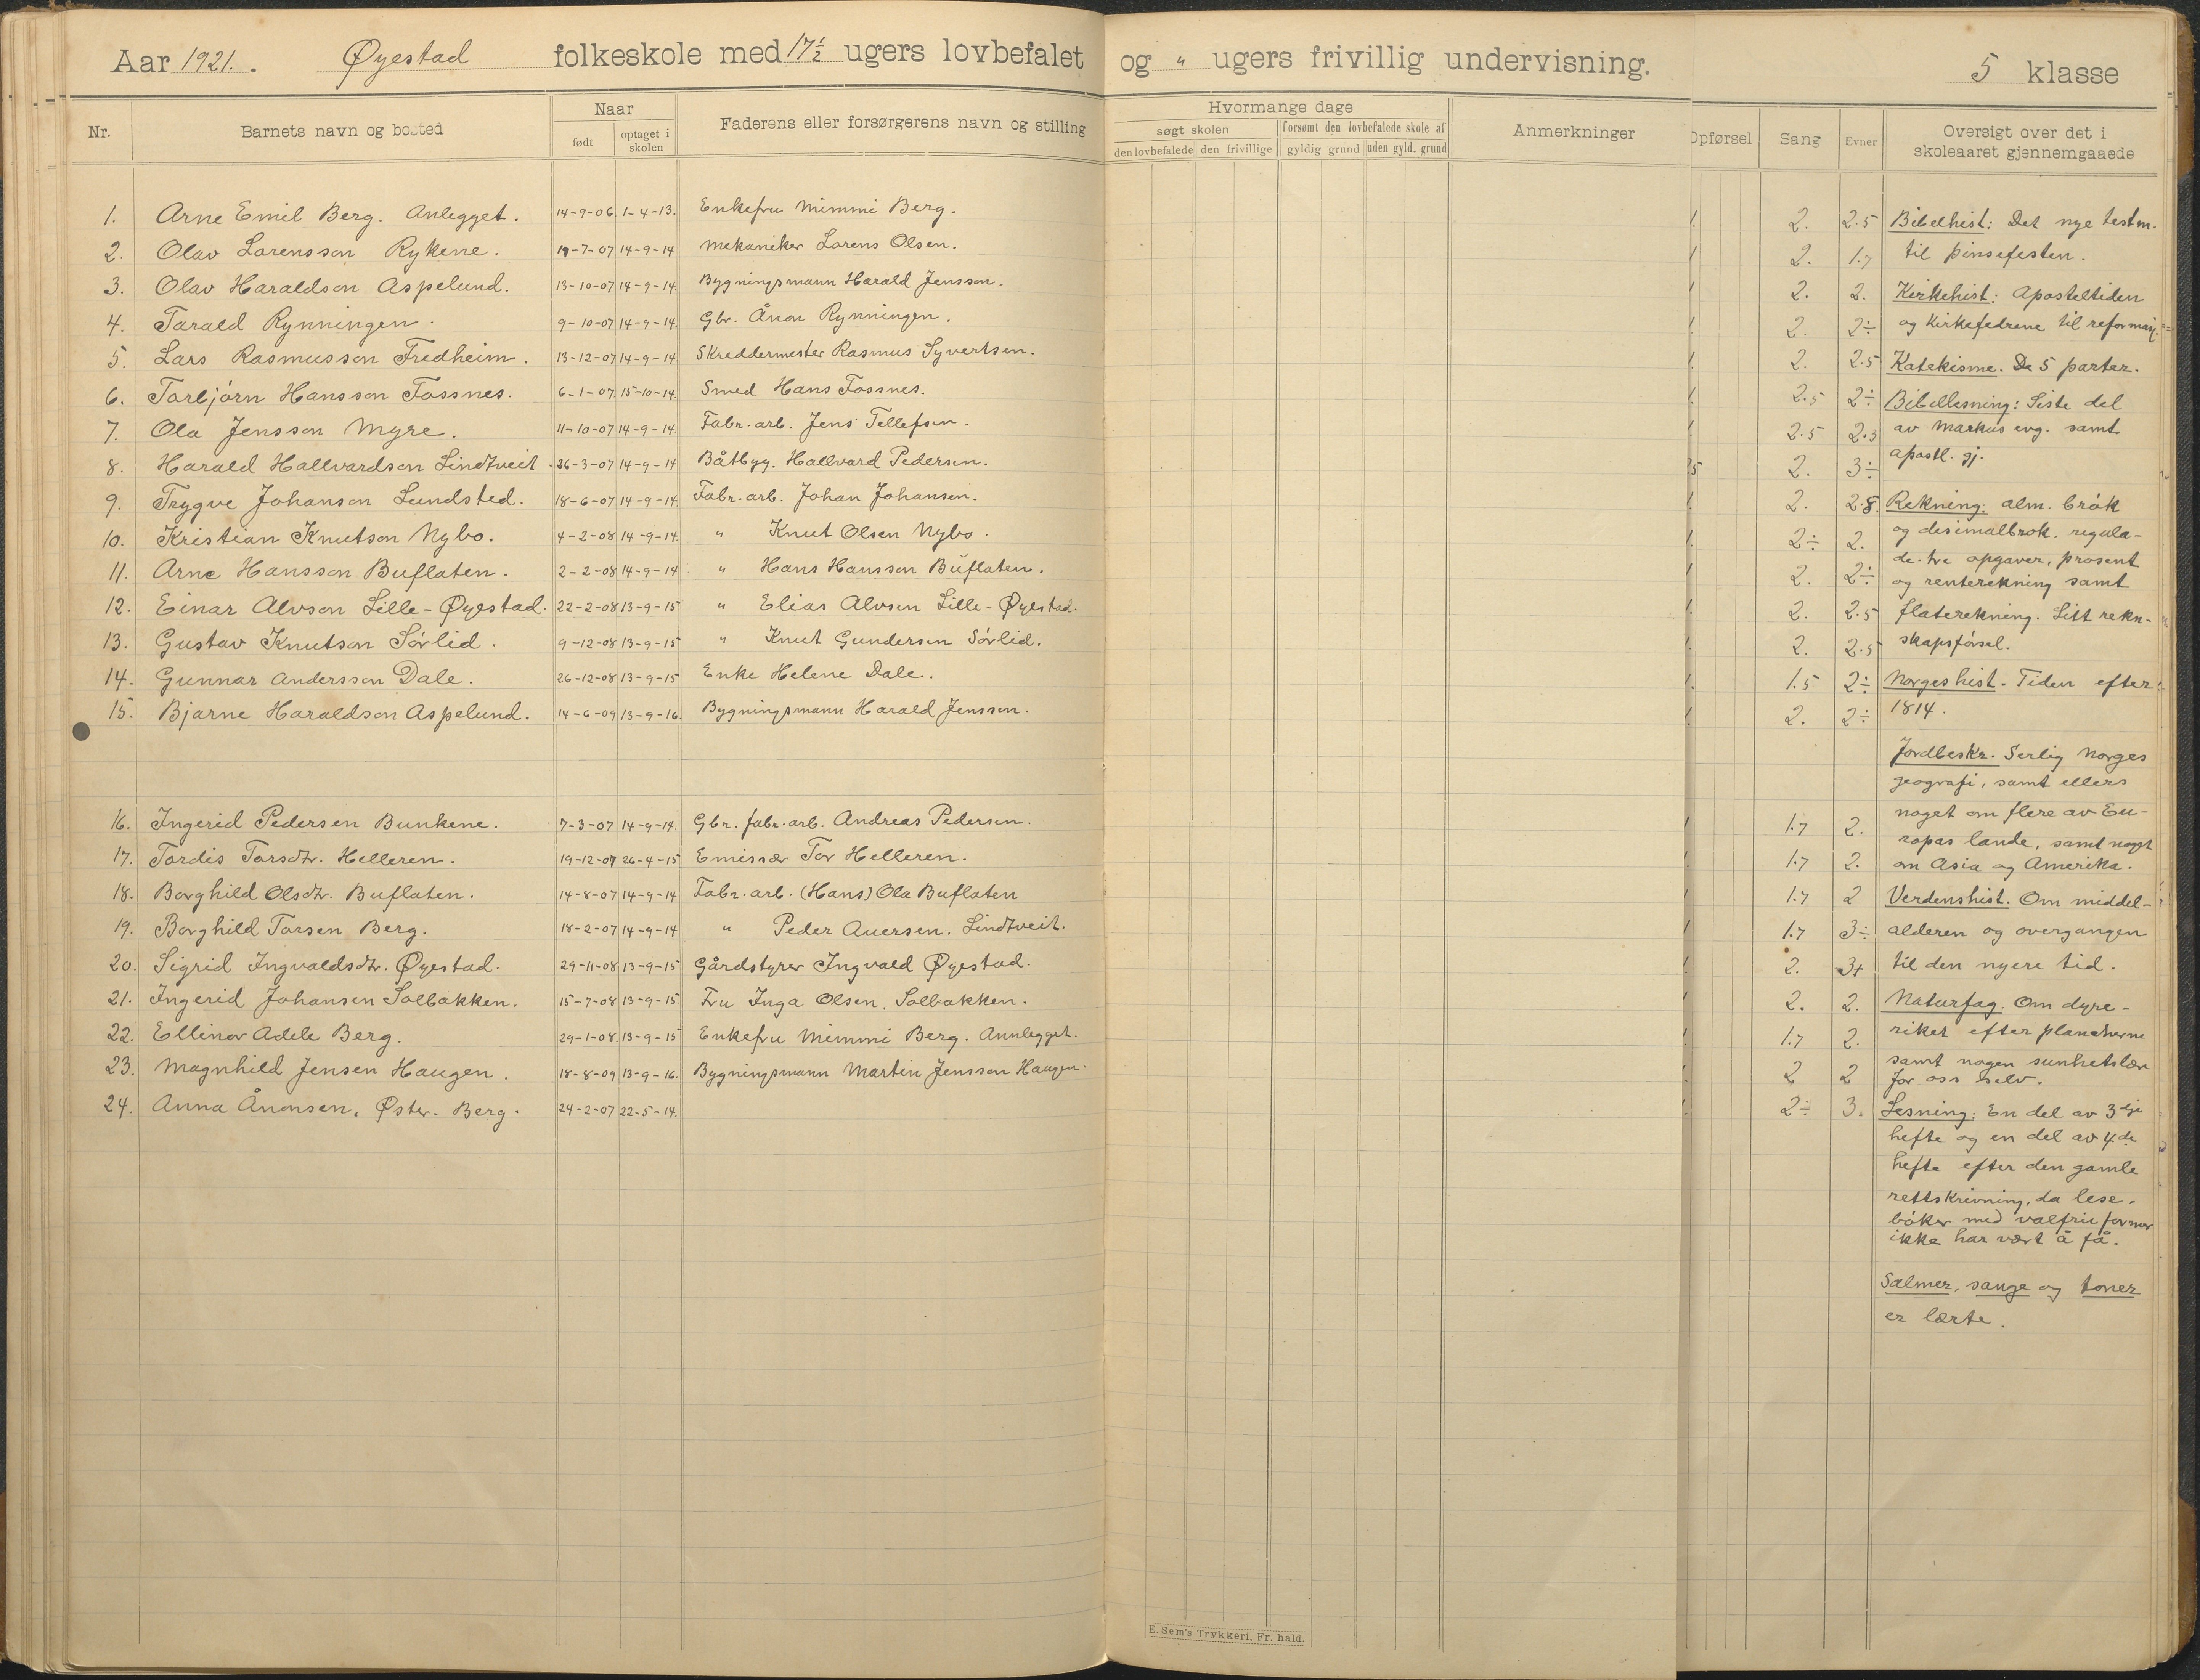 Aar 1921. Øyestad folkeskole med 17½ ugers lovbefalet og " ugers frivillig undervisning. 5 klasse
Nr. Barnets navn og bosted Naar Faderens eller forsørgerens navn og stilling
født optaget i skolen
Hvormange dage Anmerkninger
søgt skolen forsømt den lovbefalede skole af
den lovbefalede den frivillige gyldig grund uden gyld. grund
Opførsel Sang Evner Oversigt over det i
skoleaaret gjennemgaaede
1. Arne Emil Berg. Anlegget. 14-9-06 1-4-13. Enkefru Mimmi Berg.
2. Olav Lorensson Rykene. 19-7-07 14-9-14 Mekaniker Lorens Olsen.
3. Olav Haraldson Aspelund. 13-10-07 14-9-14 Bygningsmann Harald Jensson.
4. Tarald Rynningen. 9-10-07 14-9-14. Gbr. Ånon Rynningen.
5. Lars Rasmusson Fredheim. 13-12-07 14-9-14. Skreddermester Rasmus Syvertsen.
6. Torbjørn Hansson Fossnes. 6-1-07 15-10-14. Smed Hans Fossnes.
7. Ola Jensson Myre. 11-10-07 14-9-14. Fabr. arb. Jens Tellefsen.
8. Harald Hallvardson Lindtveit. 26-3-07 14-9-14 Båtbyg. Hallvard Pedersen.
9. Trygve Johanson Lundsted. 18-6-07 14-9-14. Fabr. arb. Johan Johansen.
10. Kristian Knutson Nybo. 4-2-08 14-9-14. " Knut Olsen Nybo.
11. Arne Hansson Buflaten. 2-2-08 14-9-14 " Hans Hansson Buflaten.
12. Einar Alvson Lille-Øyestad. 22-2-08 13-9-15 " Elias Alvsen Lille-Øyestad.
13. Gustav Knutson Sørlid. 9-12-08 13-9-15 " Knut Gundersen Sørlid.
14. Gunnar Andersson Dale. 26-12-08 13-9-15 Enke Helene Dale.
15. Bjarne Haraldson Aspelund. 14-6-09 13-9-16. Bygningsmann Harald Jenssen.
16. Ingerid Pedersen Bunkene. 7-3-07 14-9-14. Gbr. fabr. arb. Andreas Pedersen.
17. Tordis Torsdtr. Helleren. 19-12-07 26-4-15 Emissær Tor Helleren.
18. Borghild Olsdtr. Buflaten. 14-8-07 14-9-14 Fabr. arb. (Hans) Ola Buflaten
19. Borghild Torsen Berg. 18-2-07 14-9-14 " Peder Auersen. Lindtveit.
20. Sigrid Ingvaldsdtr. Øyestad. 29-11-08 13-9-15 Gårdstyrer Ingvald Øyestad.
21. Ingerid Johansen Solbakken. 15-7-08 13-9-15 Fru Inga Olsen, Solbakken.
22. Ellinor Adele Berg. 29-1-08. 13-9-15 Enkefru Mimmi Berg. Annlegget.
23. Magnhild Jensen Haugen. 18-8-09 13-9-16. Bygningsmann Martin Jensson Haugen.
24. Anna Ånonsen, Øster. Berg. 24-2-07 22-5-14.
2. 2.5
2. 1.7
2. 2.
2. 2÷
2. 2.5
2.5 2÷
2.5 2.3
2. 3÷
2. 2.8
2÷ 2.
2. 2÷
2. 2.5
2. 2.5
1.5 2÷
2. 2÷
1.7 2.
1.7 2.
1.7 2
1.7 3÷
2. 3+
2. 2.
1.7 2.
2 2
2÷ 3.
Bibelhist: Det nye testm.
til pinsefesten.
Kirkehist: Aposteltiden
og kirkefedrene til reformasj.
Katekisme. De 5 parter.
Bibellesning: Siste del
av Markus evg. samt
apostl. gj.
Rekning: alm. brøk
og desimalbrøk. regula-
de-tre opgaver, prosent
og renterekning samt
flaterekning. Litt rekn-
skapsførsel.
Norgeshist. Tiden efter
1814.
Jordbeskr. Serlig Norges
geografi, samt ellers
noget om flere av Eu-
ropas lande, samt noget
om Asia og Amerika.
Verdenshist. Om middel-
alderen og overgangen
til den nyere tid.
Naturfag. Om dyre-
riket efter plancherne
samt nogen sunhetslære
for oss selv.
Lesning: En del av 3dje
hefte og en del av 4de
hefte efter den gamle
rettskrivning, da lese-
bøker med valfrie former
ikke har vært å få.
Salmer, sange og toner
er lærte.
E. Sem's Trykkeri, Fr. hald.